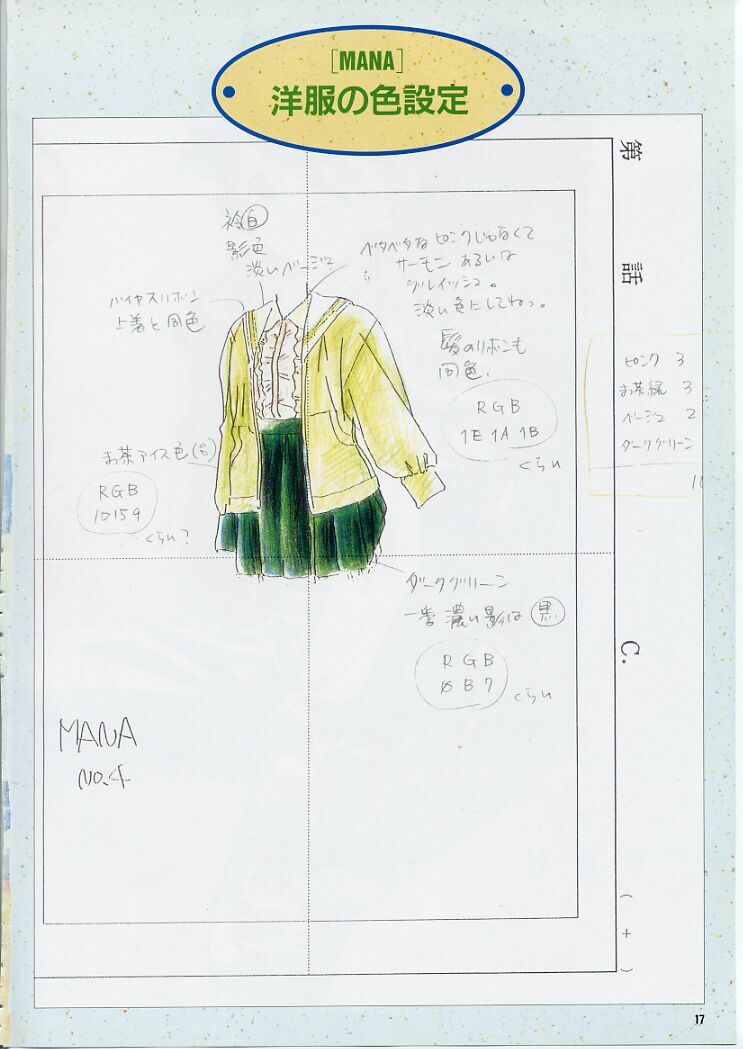 [MANA]
洋服の色設定
第 話
衿 白
影色
淡いベージュ
ベタベタなピンクじゃなくて
サーモンあるいは
グレイッシュ。
淡い色にしてねっ。
バイヤスリボン
上着と同色
髪のリボンも
同色。
RGB
1E 1A 1B
くらい
ピンク 3
お茶緑 3
ベージュ 2
ダークグリーン
お茶アイス色
RGB
10 15 9
くらい?
ダークグリーン
一番濃い影は 黒
RGB
0 B 7
くらい
C.
MANA
NO.4
( + )
17